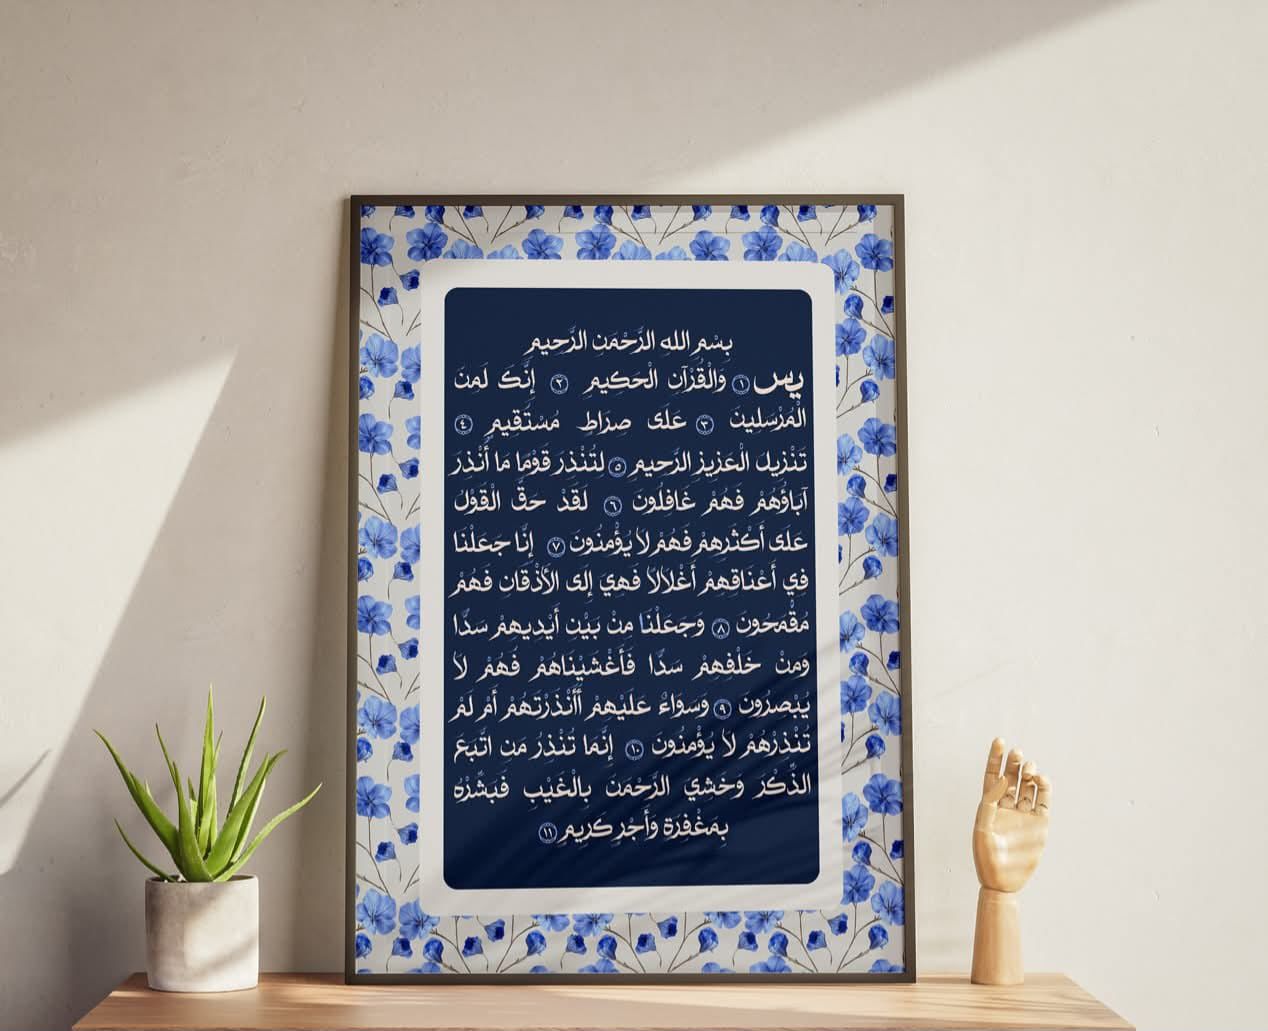 بِسْمِ اللهِ الرَّحْمَنِ الرَّحِيمِ
يس ١ وَالْقُرْآنِ الْحَكِيمِ ٢ إِنَّكَ لَمِنَ
الْمُرْسَلِينَ ٣ عَلَى صِرَاطٍ مُسْتَقِيمٍ ٤
تَنْزِيلَ الْعَزِيزِ الرَّحِيمِ ٥ لِتُنْذِرَ قَوْمًا مَا أُنْذِرَ
آبَاؤُهُمْ فَهُمْ غَافِلُونَ ٦ لَقَدْ حَقَّ الْقَوْلُ
عَلَى أَكْثَرِهِمْ فَهُمْ لَا يُؤْمِنُونَ ٧ إِنَّا جَعَلْنَا
فِي أَعْنَاقِهِمْ أَغْلَالًا فَهِيَ إِلَى الْأَذْقَانِ فَهُمْ
مُقْمَحُونَ ٨ وَجَعَلْنَا مِنْ بَيْنِ أَيْدِيهِمْ سَدًّا
وَمِنْ خَلْفِهِمْ سَدًّا فَأَغْشَيْنَاهُمْ فَهُمْ لَا
يُبْصِرُونَ ٩ وَسَوَاءٌ عَلَيْهِمْ أَأَنْذَرْتَهُمْ أَمْ لَمْ
تُنْذِرْهُمْ لَا يُؤْمِنُونَ ١٠ إِنَّمَا تُنْذِرُ مَنِ اتَّبَعَ
الذِّكْرَ وَخَشِيَ الرَّحْمَنَ بِالْغَيْبِ فَبَشِّرْهُ
بِمَغْفِرَةٍ وَأَجْرٍ كَرِيمٍ ١١